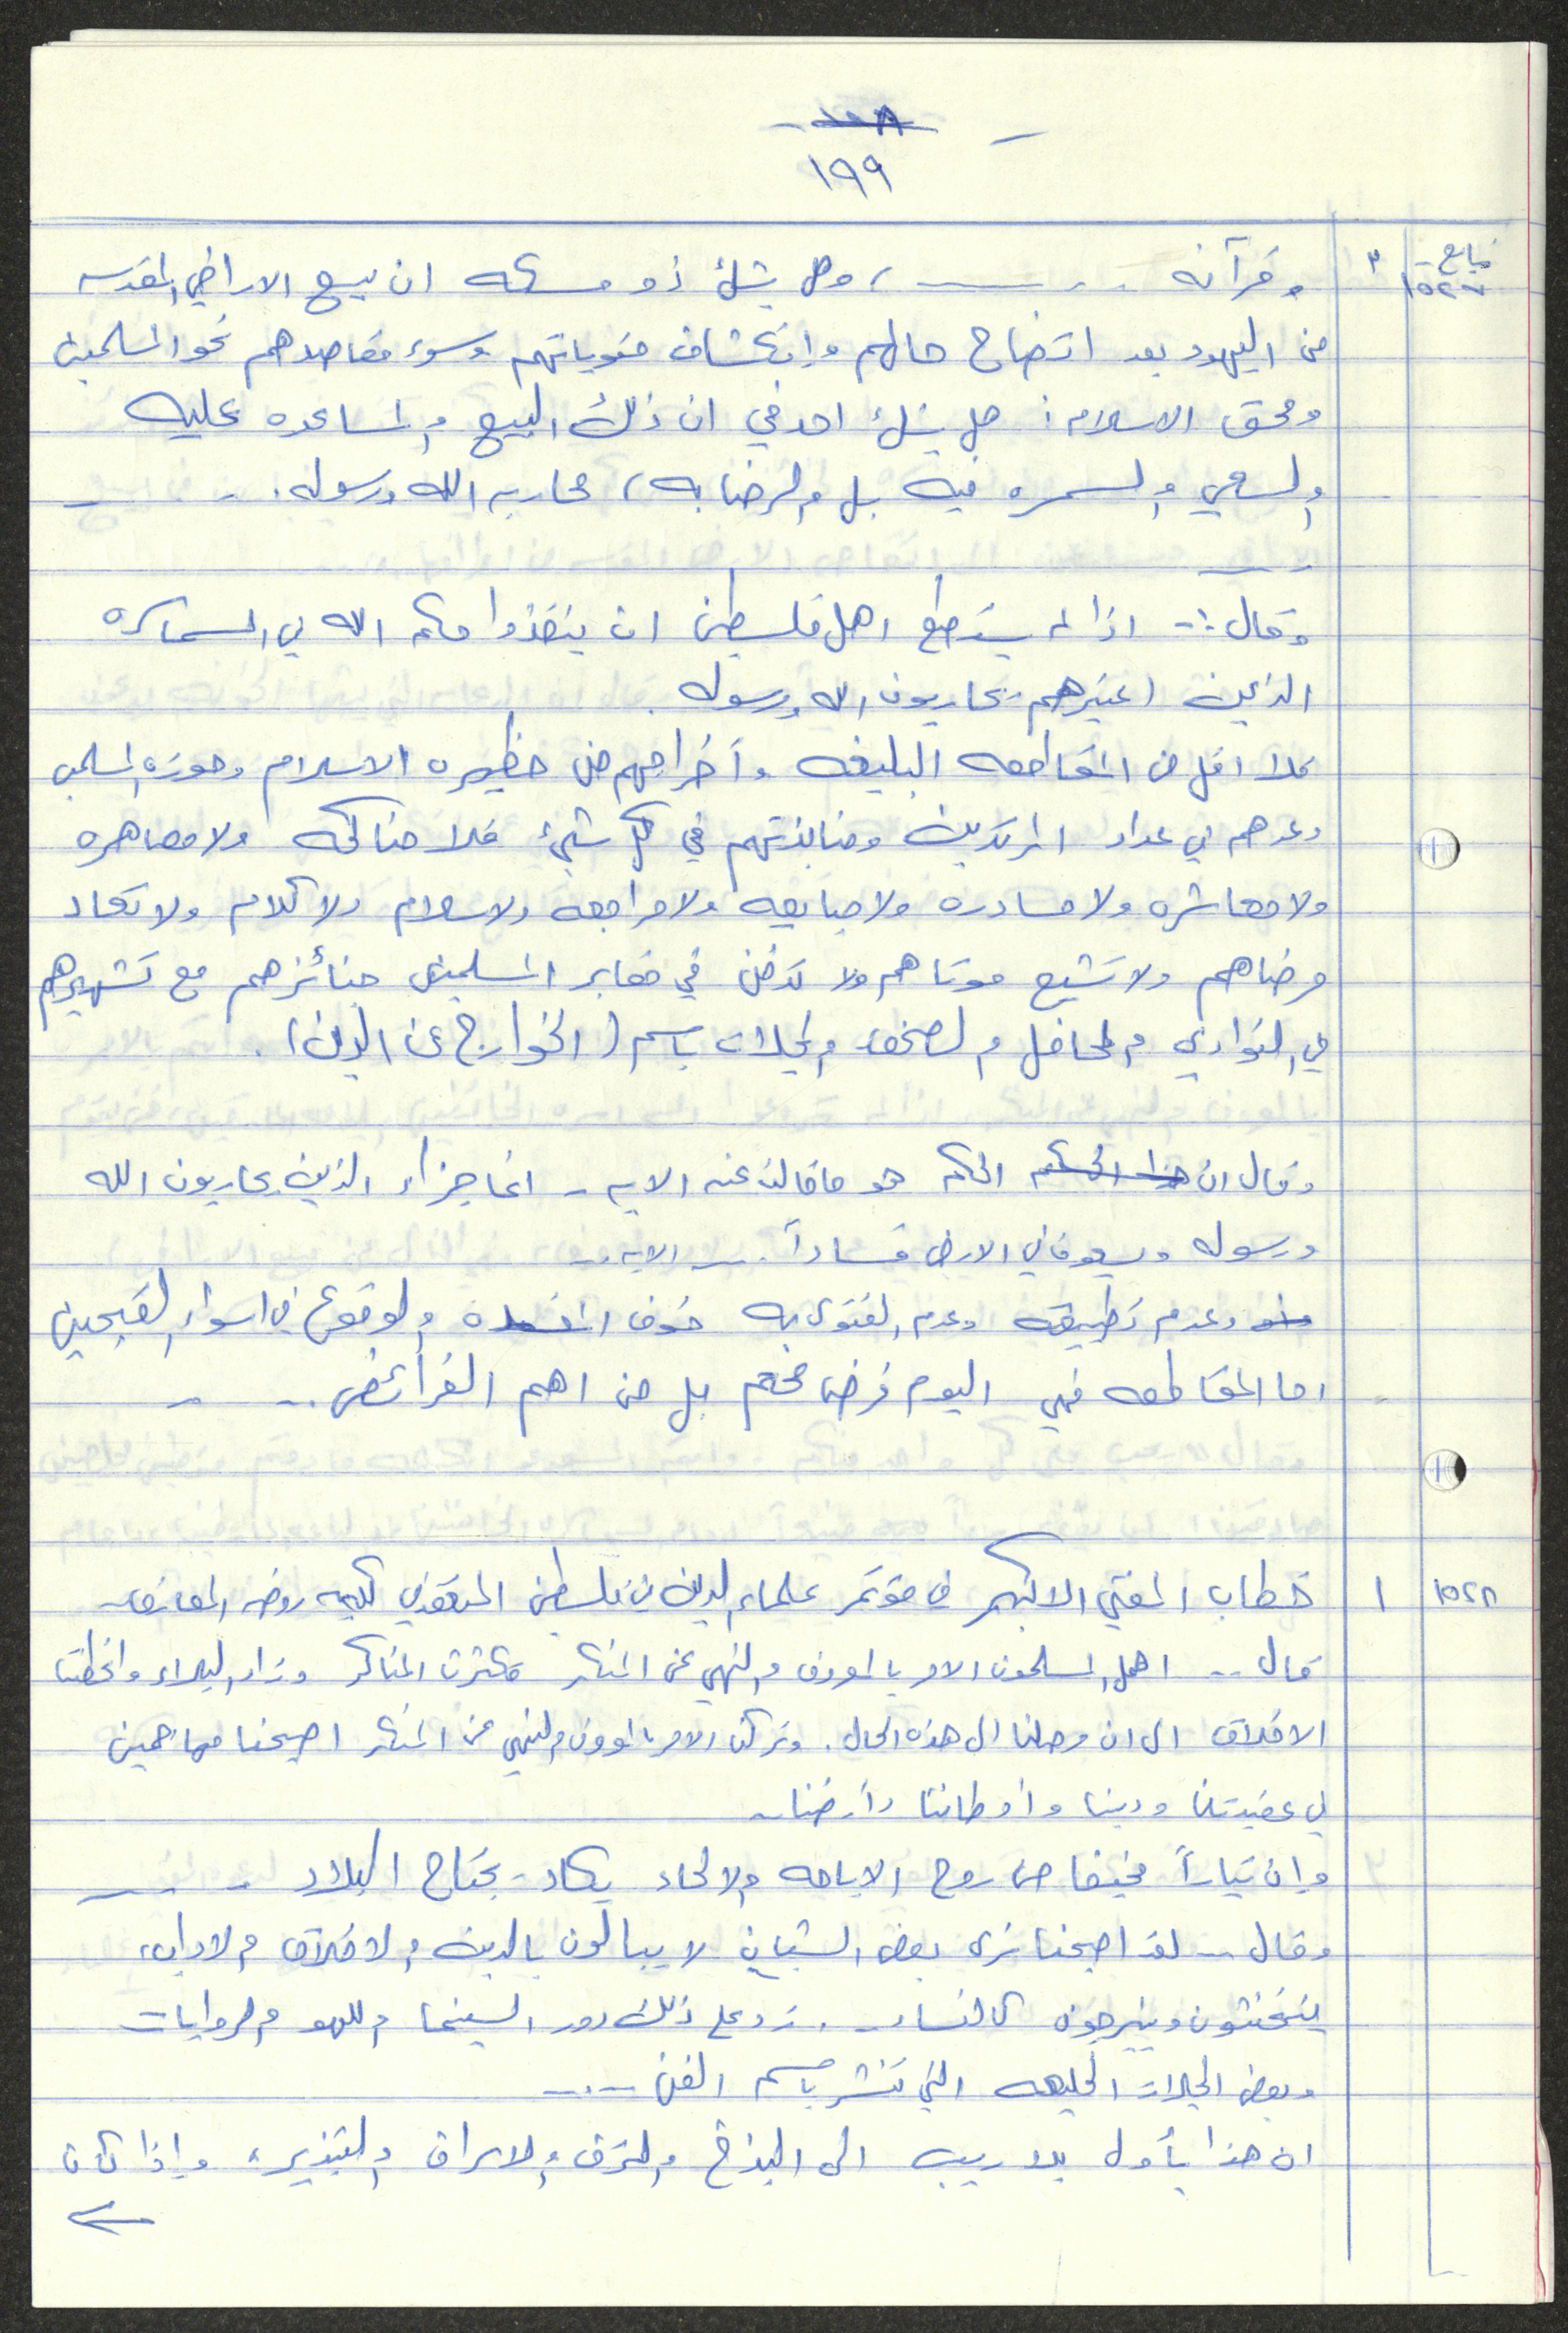 ١٩٩
تابع
١٥٢٧
٣
وقرآنه ، وهل يشك ذو مسكه ان بيع الاراضي المقدسه
من اليهود بعد اتضاح حالهم وانكشاف منوياتهم وسوء مقاصدهم نحو المسلمين
ومحق الاسلام : هل يشك احد في ان ذلك البيع والمساعده عليه
والسعي والسمسره فيه بل والرضا به ، محاربه الله ورسوله . -
وقال :- اذا لم يستطع اهل فلسطين ان ينفذوا حكم الله في السماسره
الذين اعتبرهم يحاربون الله ورسوله .
فلا اقل من المقاطعه البليغه وأخراجهم من حظيره الاسلام وحوزه المسلمين
وعدهم في عداد المرتدين ومنابذتهم في كل شيئ فلا مناكحه ولا مصاهره
ولا معاشره ولا مساومه ولا مبايعه ولا مراجعه ولا سلام ولا كلام ولا تعاد
مرضاهم ولا تشيع موتاهم ولا تدفن في مقابر المسلمين جنائزهم مع تشهيرهم
في النوادي والمحافل والصحف والمجلات باسم ( الخوارج عن الدين ) .
وقال ان هذا الحكم الحكم هو ما قالت عنه الايه - انما جزاء الذين يحاربون الله
ورسوله ويسعون في الارض فسادآ .. الايه ..
وعدم تطبيقه وعدم الفتوى به خوف المفسدة والوقوع في اسواء القبيحين
اما المقاطعه فهي اليوم فرض محتم بل من اهم الفرائض .. -
١٥٢٨
١
خطاب المفتي الاكبر في مؤتمر علماء الدين في فلسطين المنعقد في كليه روضه المعارف
قال .. اهمل المسلمون الامر بالمعروف والنهي عن المنكر فكثرت المناكر وزاد البلاء وانحطت
الاخلاق الى ان وصلنا الى هذه الحال . وتركنا الامر بالمعروف والنهي عن المنكر اصبحنا مهاجمين
في عقيدتنا وديننا وأوطاننا وأرضنا ..
وان تياراً مخيفا من روح الاباحه والالحاد يكاد يجتاح البلاد -
وقال .. لقد اصبحنا نرى بعض الشبان لا يبالون بالدين والاخلاق والاداب ،
يتخنثون ويتبرجون كالنساء .. زد على ذلك دور السينما واللهو والروايات
وبعض المجلات الخليعه التي تنشر باسم الفن ...
ان هذا يأول بلا ريب الى البذخ والترف والاسراف والتبذير ، وإذا كان